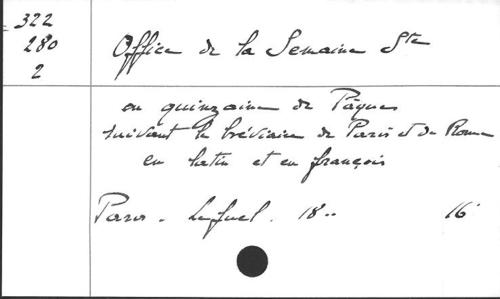 322
280
2
Office de la Semaine Ste
ou quinzaine de Pâques
suivant le bréviaire de Paris et de Rome
en latin et en françois
Paris. Lefuel. 18.. 16